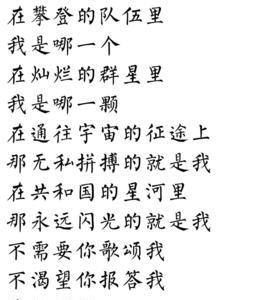 在攀登的队伍里
我是哪一个
在灿烂的群星里
我是哪一颗
在通往宇宙的征途上
那无私拼搏的就是我
在共和国的星河里
那永远闪光的就是我
不需要你歌颂我
不渴望你报答我